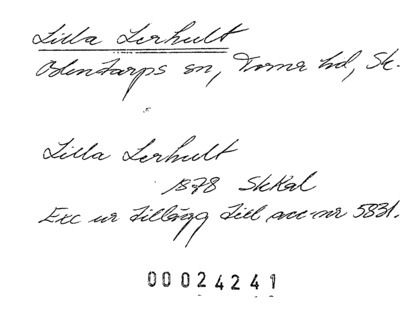 Lilla Lerhult
Odentarps sn, Torna hd, Sk.
Lilla Lerhult
1878 SkKal
Exc ur Tillägg till acc-nr 5831.
00024241